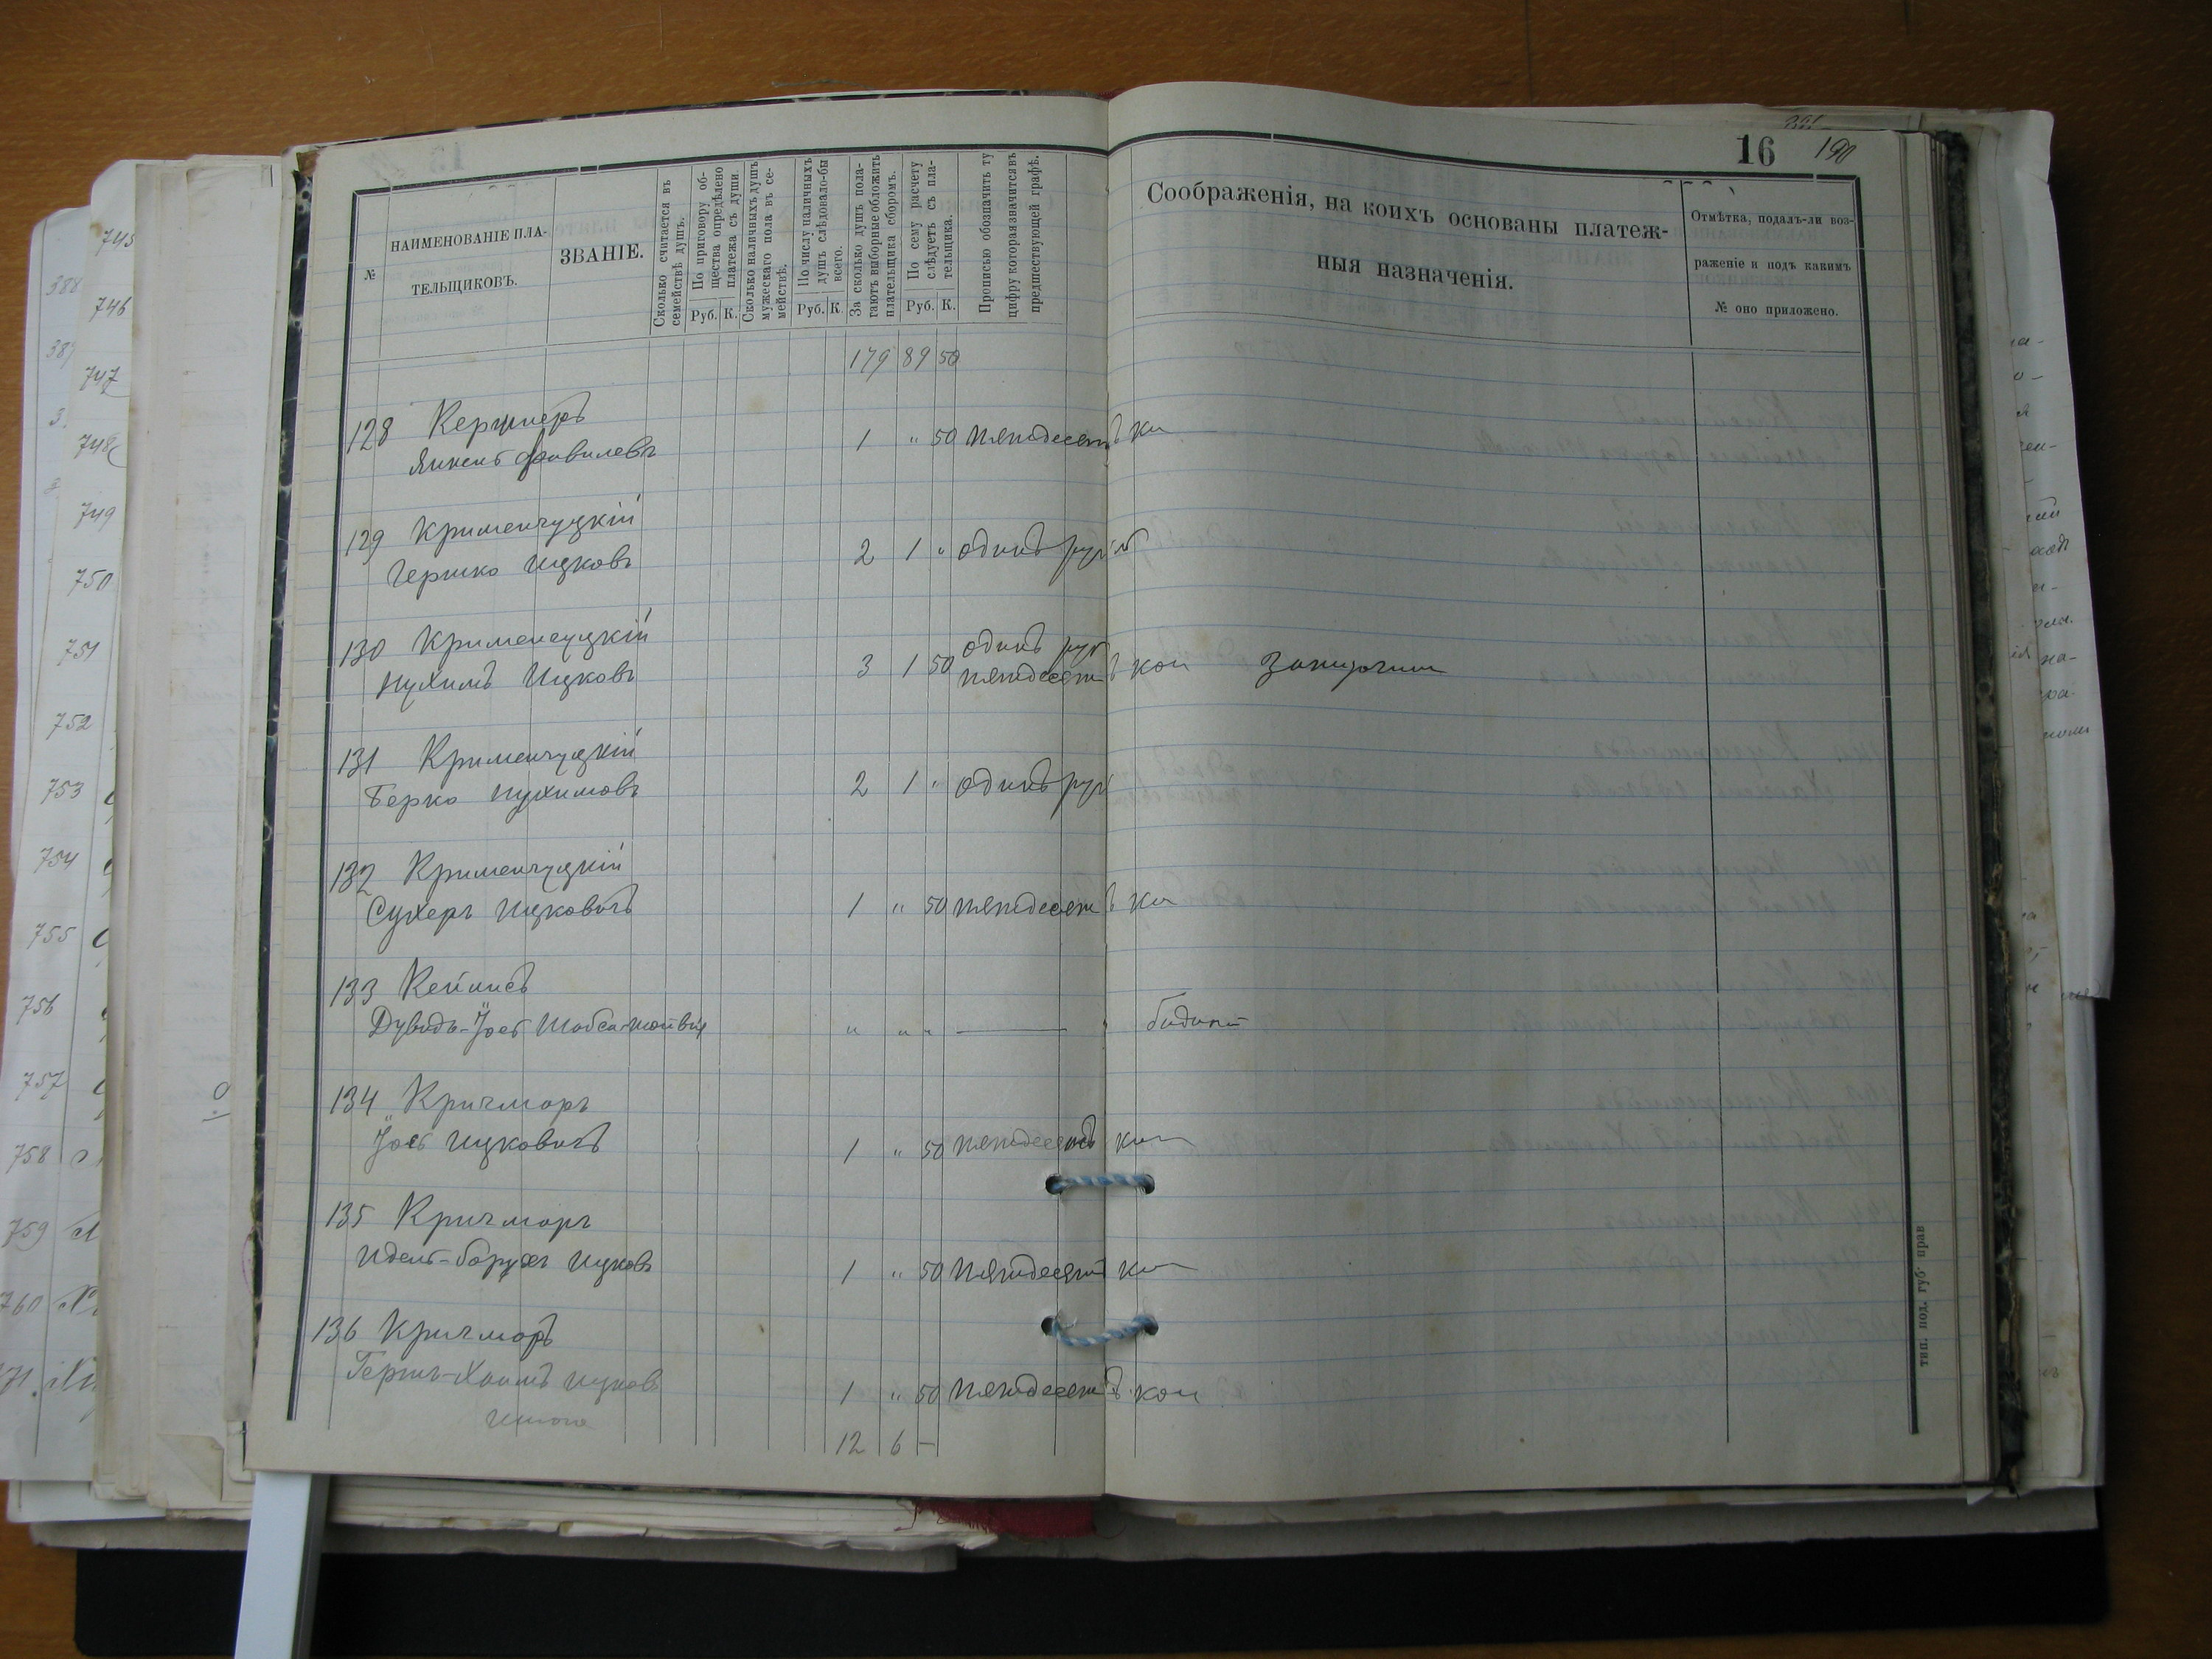 16 190
№
НАИМЕНОВАНІЕ ПЛА-
ТЕЛЬЩИКОВЪ.
ЗВАНІЕ.
Сколько считается въ
семействѣ душъ.
По приговору об-
щества опредѣлено
платежа съ души.
Руб. К.
Сколько наличныхъ душъ
мужескаго пола въ се-
мействѣ.
По числу наличныхъ
душъ слѣдовало-бы
всего.
Руб. К.
За сколько душъ пола-
гаютъ выборные обложить
плательщика сборомъ.
По сему расчету
слѣдуетъ съ пла-
тельщика.
Руб. К.
Прописью обозначить ту
цифру которая значится въ
предшествующей графѣ.
Соображенія, на коихъ основаны платеж-
ныя назначенія.
Отмѣтка, подалъ-ли воз-
раженіе и подъ какимъ
№ оно приложено.
179 89 50
128
1 " 50 пятдесятъ ко
129 Крименчуцкій
Гершко Ицковъ 2 1 " одинъ рубль
130 Крименчуцкій
одинъ руб
Нухимъ Ицковъ 3 1 50 пятдесятъ коп
131 Крименчуцкій
Берко Нухимовъ 2 1 " одинъ руб
132 Крименчуцкій
Сухеръ Ицковичъ 1 " 50 пятдесятъ ко
133
Дувидъ-Іось " " "
134 Кричморъ
Іось Ицковичъ 1 " 50 пятдесятъ ко
135 Кричморъ
Идель-Борухъ Ицковъ 1 " 50 пятдесятъ ко
136 Кричморъ
Гершъ-Хаимъ Ицковъ 1 " 50 пятдесятъ коп
Итого 12 6 —
тип. под. губ. прав
745
746
747
748
749
750
751
752
753
754
755
756
757
758
759
760